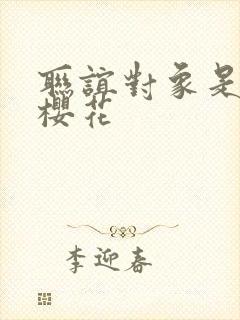 聯誼對象是
櫻花
李迎春